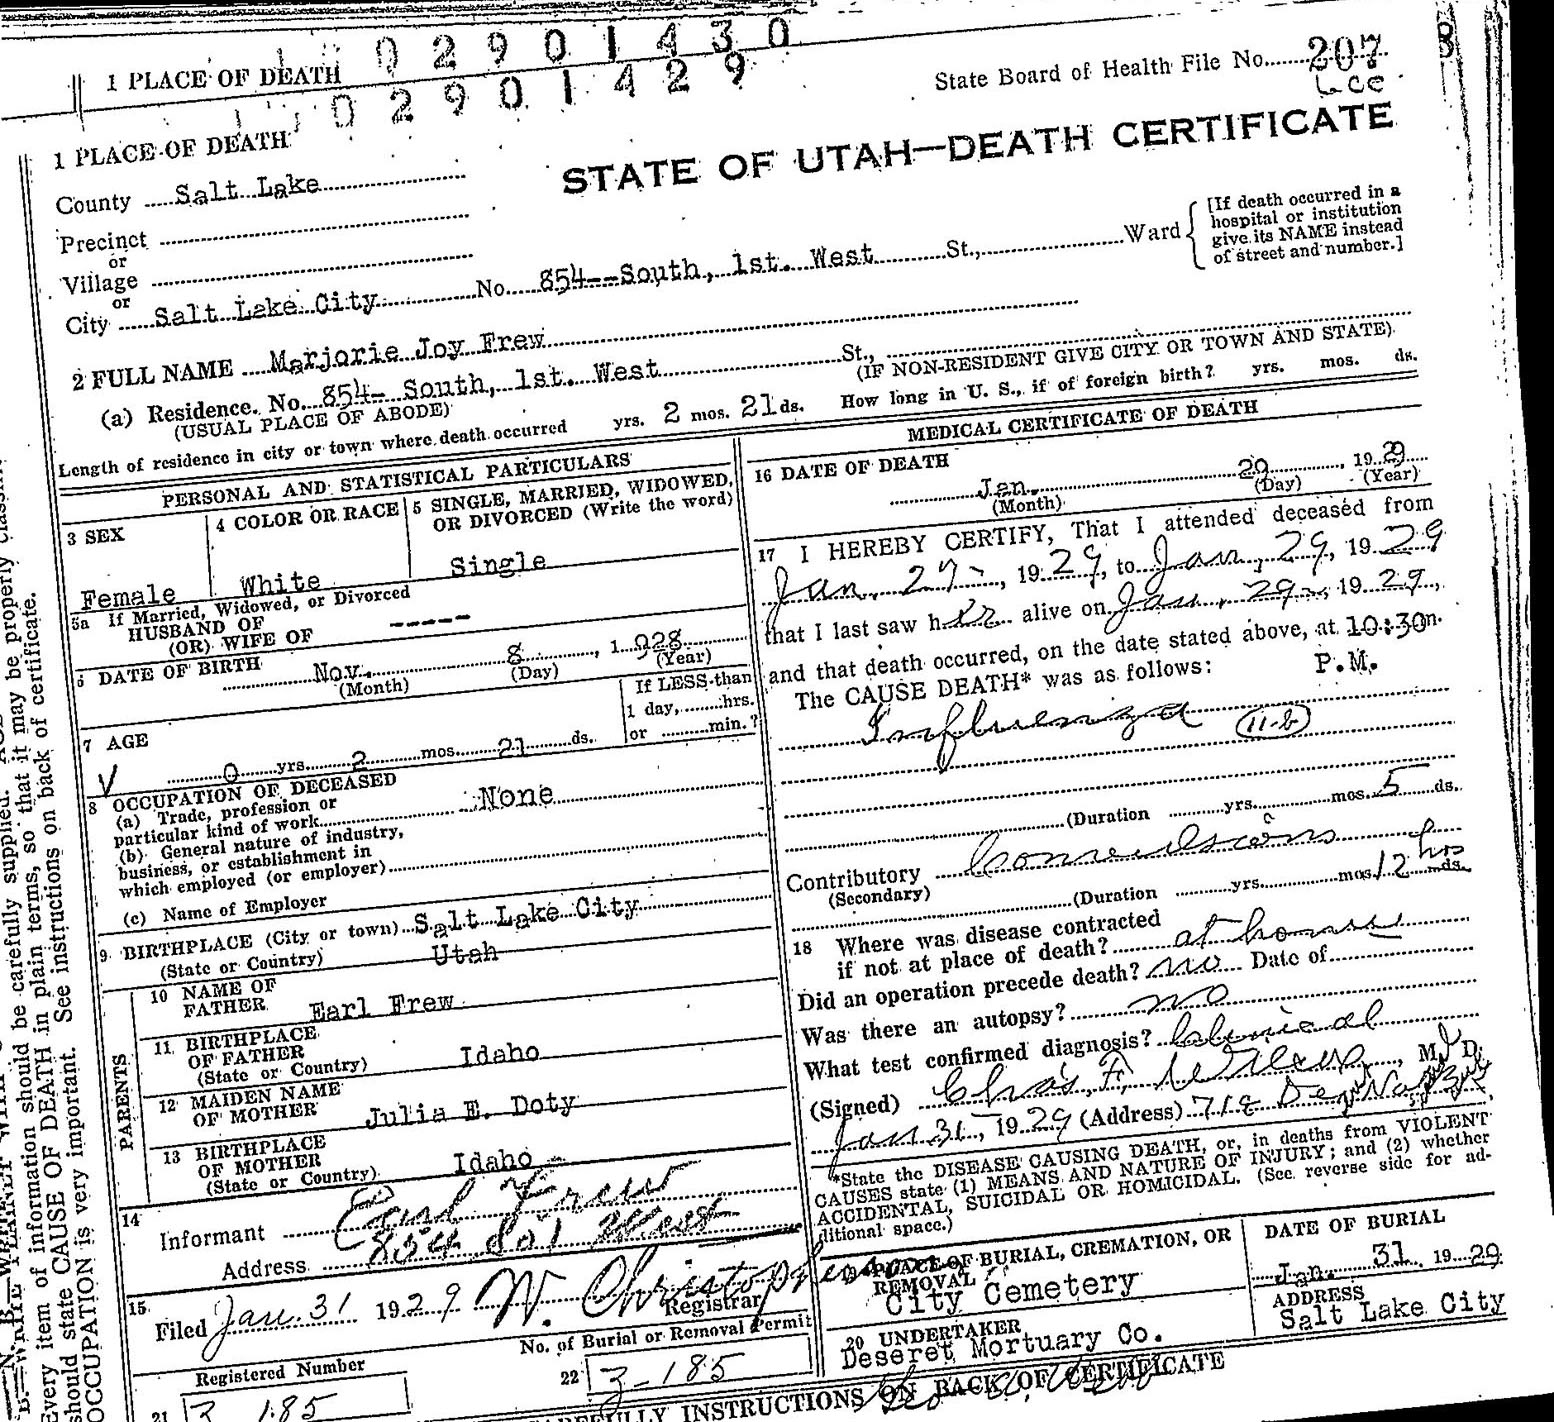 1 PLACE OF DEATH 02901430
02901429
State Board of Health File No. 207
1 PLACE OF DEATH
STATE OF UTAH—DEATH CERTIFICATE
County Salt Lake
Precinct
or
Village
or
City Salt Lake City No. 854--South, 1st. West St., Ward
[If death occurred in a
hospital or institution
give its NAME instead
of street and number.]
2 FULL NAME Marjorie Joy Frew
(a) Residence. No. 854- South, 1st. West St.,
(USUAL PLACE OF ABODE)
(IF NON-RESIDENT GIVE CITY OR TOWN AND STATE)
Length of residence in city or town where death occurred yrs. 2 mos. 21 ds. How long in U. S., if of foreign birth? yrs. mos. ds.
PERSONAL AND STATISTICAL PARTICULARS
3 SEX
Female
4 COLOR OR RACE
White
5 SINGLE, MARRIED, WIDOWED,
OR DIVORCED (Write the word)
Single
5a If Married, Widowed, or Divorced
HUSBAND OF
(OR) WIFE OF -----
6 DATE OF BIRTH Nov. 8, 1928
(Month) (Day) (Year)
7 AGE
0 yrs. 2 mos. 21 ds.
If LESS than
1 day, hrs.
or min.?
8 OCCUPATION OF DECEASED
(a) Trade, profession or
particular kind of work None
(b) General nature of industry,
business, or establishment in
which employed (or employer)
(c) Name of Employer
9 BIRTHPLACE (City or town) Salt Lake City
(State or Country) Utah
PARENTS
10 NAME OF
FATHER Earl Frew
11 BIRTHPLACE
OF FATHER
(State or Country) Idaho
12 MAIDEN NAME
OF MOTHER Julia E. Doty
13 BIRTHPLACE
OF MOTHER
(State or Country) Idaho
14
Informant Earl Frew
Address 854 So 1 West
15
Filed Jan. 31 1929 W. Christopherson
Registrar
No. of Burial or Removal Permit
22 3-185
Registered Number
21 3 185
MEDICAL CERTIFICATE OF DEATH
16 DATE OF DEATH
Jan. 29, 1929
(Month) (Day) (Year)
17 I HEREBY CERTIFY, That I attended deceased from
Jan. 27-, 1929, to Jan, 29, 1929
that I last saw her alive on Jan, 29-, 1929,
and that death occurred, on the date stated above, at 10:30 m.
P.M.
The CAUSE DEATH* was as follows:
Influenza 11-b
(Duration yrs. mos. 5 ds.
Contributory Convulsions
(Secondary)
(Duration yrs. mos. 12 hrs ds.
18 Where was disease contracted
if not at place of death? at home
Did an operation precede death? no Date of
Was there an autopsy? no
What test confirmed diagnosis? Clinical
(Signed) Chas. F. Wilcox, M. D.
Jan 31, 1929 (Address) 718
*State the DISEASE CAUSING DEATH, or, in deaths from VIOLENT
CAUSES state (1) MEANS AND NATURE OF INJURY; and (2) whether
ACCIDENTAL, SUICIDAL OR HOMICIDAL. (See reverse side for ad-
ditional space.)
PLACE OF BURIAL, CREMATION, OR
REMOVAL
City Cemetery
DATE OF BURIAL
Jan. 31 1929
20 UNDERTAKER
Deseret Mortuary Co.
ADDRESS
Salt Lake City
CAREFULLY INSTRUCTIONS ON BACK OF CERTIFICATE
Every item of information should be carefully supplied.
should state CAUSE OF DEATH in plain terms, so that it may be properly
OCCUPATION is very important. See instructions on back of certificate.